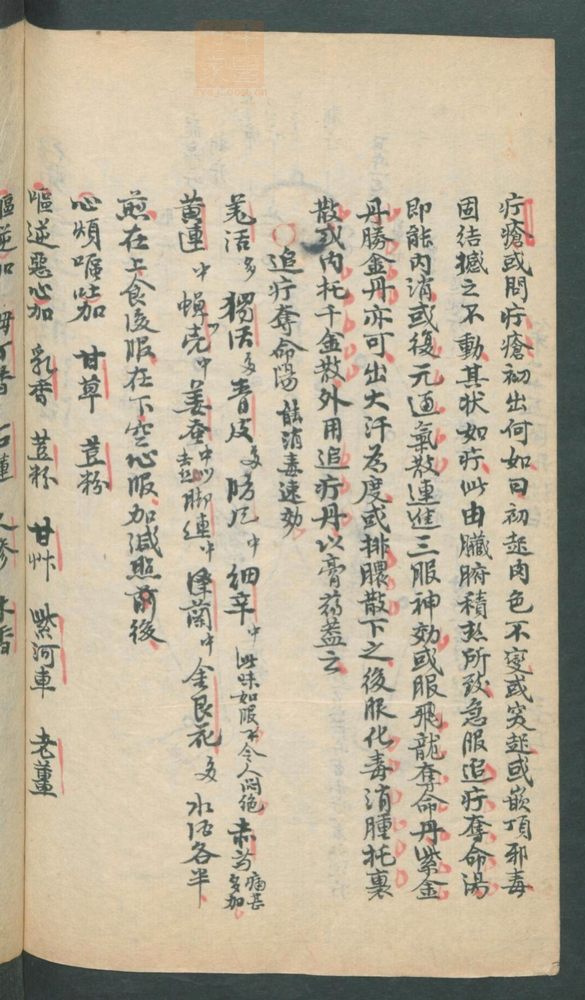 疔瘡或問疔瘡初出何如曰初起肉色不变或突起或嵌頂邪毒
固结撼之不動其状如疔此由臓腑積热所致急服追疔奪命湯
即能内消或復元通氣散連進三服神効或服飛龍奪命丹紫金
丹勝金丹亦可出大汗為度或排膿散下之後服化毒消腫托裏
散或内托千金散外用追疔丹以膏药盖之
追疔奪命湯 能消毒速効
羌活多 獨活多 青皮多 防风中 細辛中 此味如服不令人悶绝 赤芍 痛甚多加
黄連中 蝉壳中 姜蚕中 脚連中 澤蘭中 金艮花多 水酒各半
煎在上食後服在下空心服加減照前後
心煩嘔加 甘草 荳粉
嘔逆惡心加 乳香 荳粉 甘艸 紫河車 老薑
嘔逆加 丁香 石蓮 人参 木香